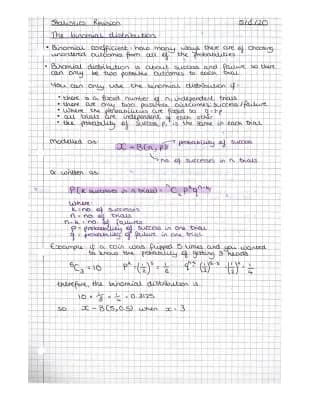 Statistics Revision 5/5/20
The binomial distribution
• Binomial coefficient: how many ways there are of choosing
unordered outcomes from all of the possibilities
• Binomial distribution is about success and failure so there
can only be two possible outcomes to each trial
You can only use the binomial distribution if:
• there is a fixed number of n independent trials
• there are only two possible outcomes, success/failure
• where the probabilities are fixed so q = 1-p
• all trials are independent of each other
• the probability of success, p, is the same in each trial
modelled as:
X ~ B(n, p) → probability of success
→ no. of successes in n trials
Or written as:
P(k successes in n trials) = ⁿCₖ pᵏqⁿ⁻ᵏ
where:
k = no. of successes
n = no. of trials
n-k = no. of failures
p = probability of success in one trial
q = probability of failure in one trial
Example if a coin was flipped 5 times and you wanted
to know the probability of getting 3 heads
⁵C₃ = 10 pᵏ = (1/2)³ = 1/8 qⁿ⁻ᵏ = (1/2)⁵⁻³ = (1/2)² = 1/4
therefore, the binomial distribution is
10 × 1/8 × 1/4 = 0.3125
so X ~ B(5, 0.5) when x = 3